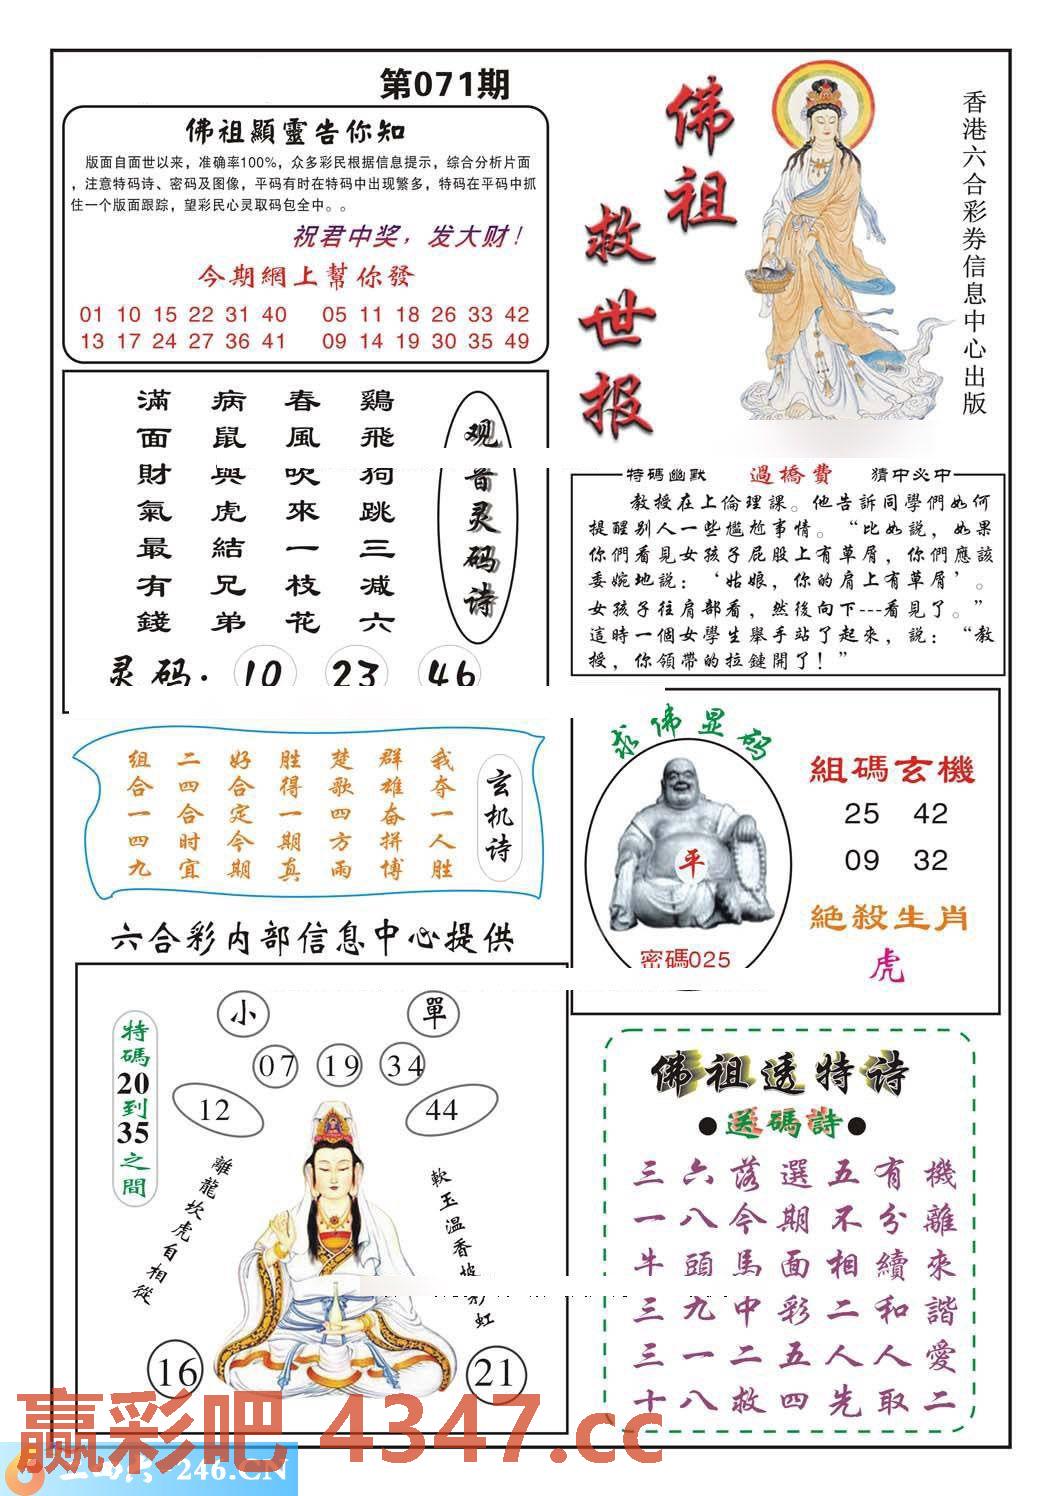 第071期
佛祖顯靈告你知
版面自面世以来，准确率100%，众多彩民根据信息提示，综合分析片面
，注意特码诗、密码及图像，平码有时在特码中出现繁多，特码在平码中抓
住一个版面跟踪，望彩民心灵取码包全中。。
祝君中奖，发大财！
今期網上幫你發
01 10 15 22 31 40 05 11 18 26 33 42
13 17 24 27 36 41 09 14 19 30 35 49
佛祖
救世报
香港六合彩券信息中心出版
观音灵码诗
鷄飛狗跳三减六
春風吹來一枝花
病鼠與虎結兄弟
滿面財氣最有錢
灵码：10 23 46
特碼幽默 過橋費 猜中必中
教授在上倫理課。他告訴同學們如何
提醒别人一些尷尬事情。“比如説，如果
你們看見女孩子屁股上有草屑，你們應該
委婉地説：‘姑娘，你的肩上有草屑’。
女孩子往肩部看，然後向下---看見了。”
這時一個女學生舉手站了起來，説：“教
授，你領帶的拉鏈開了！”
玄机诗
我夺一人胜
群雄奋拼博
楚歌四方雨
胜得一期真
好合定今期
二四合时宜
组合一四九
六合彩内部信息中心提供
求佛显码
平
密碼025
組碼玄機
25 42
09 32
絕殺生肖
虎
小 單
07 19 34
12 44
特碼20到35之間
離龍坎虎自相從
軟玉温香披彩虹
16 21
佛祖透特诗
●送碼詩●
三六落選五有機
一八今期不分離
牛頭馬面相續來
三九中彩二和諧
三一二五人人愛
十八救四先取二
赢彩吧 4347.cc
246.CN